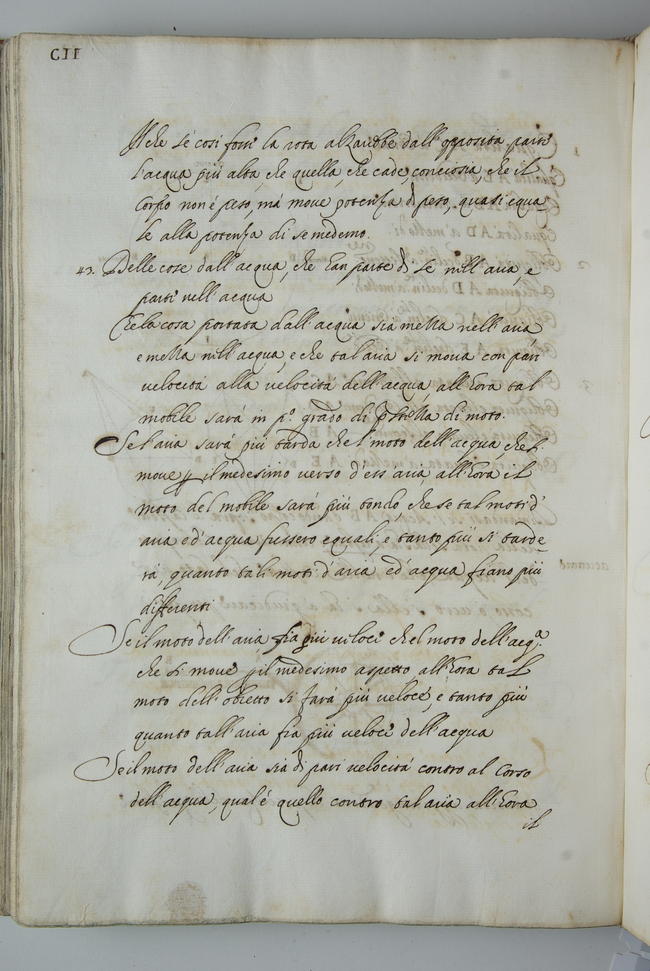 CII
Il che se cosi fosse la rota alzarebbe dall'opposita parte
l'acqua piú alta, che quella, che cade, conciosia, che il
Corpo non é peso, má move potenza di peso, quasi equa
le alla potenza di se medemo.
43. Delle cose dall'acqua, che han parte di se nell'aria, e
parte nell'acqua
Che la cosa portata dall'acqua sia meza nell'aria
e meza nell'acqua, e che tal'aria si mova con pari
velocitá alla velocitá dell'acqua, all'hora tal
mobile sará in p.o grado di di moto.
Se l'aria sará piú tarda che'l moto dell'acqua, che si
move p il medesimo verso d'ess'aria, all'hora il
moto del mobile sará piú tardo, che se tal moti d'
aria ed'acqua fussero equali, e tanto piú si tarde-
rá, quanto tali moti d'aria ed'acqua fiano piú
differenti
Se il moto dell'aria fia piú veloce che'l moto dell'acq.a
che si move p il medesimo aspetto all'hora tal
moto dell'obietto si fará piú veloce, e tanto piú
quanto tall'aria fia piú veloce dell'acqua
Se il moto dell'aria sia di pari velocitá contro al Corso
dell'acqua, qual'é quello contro tal'aria all'hora
il